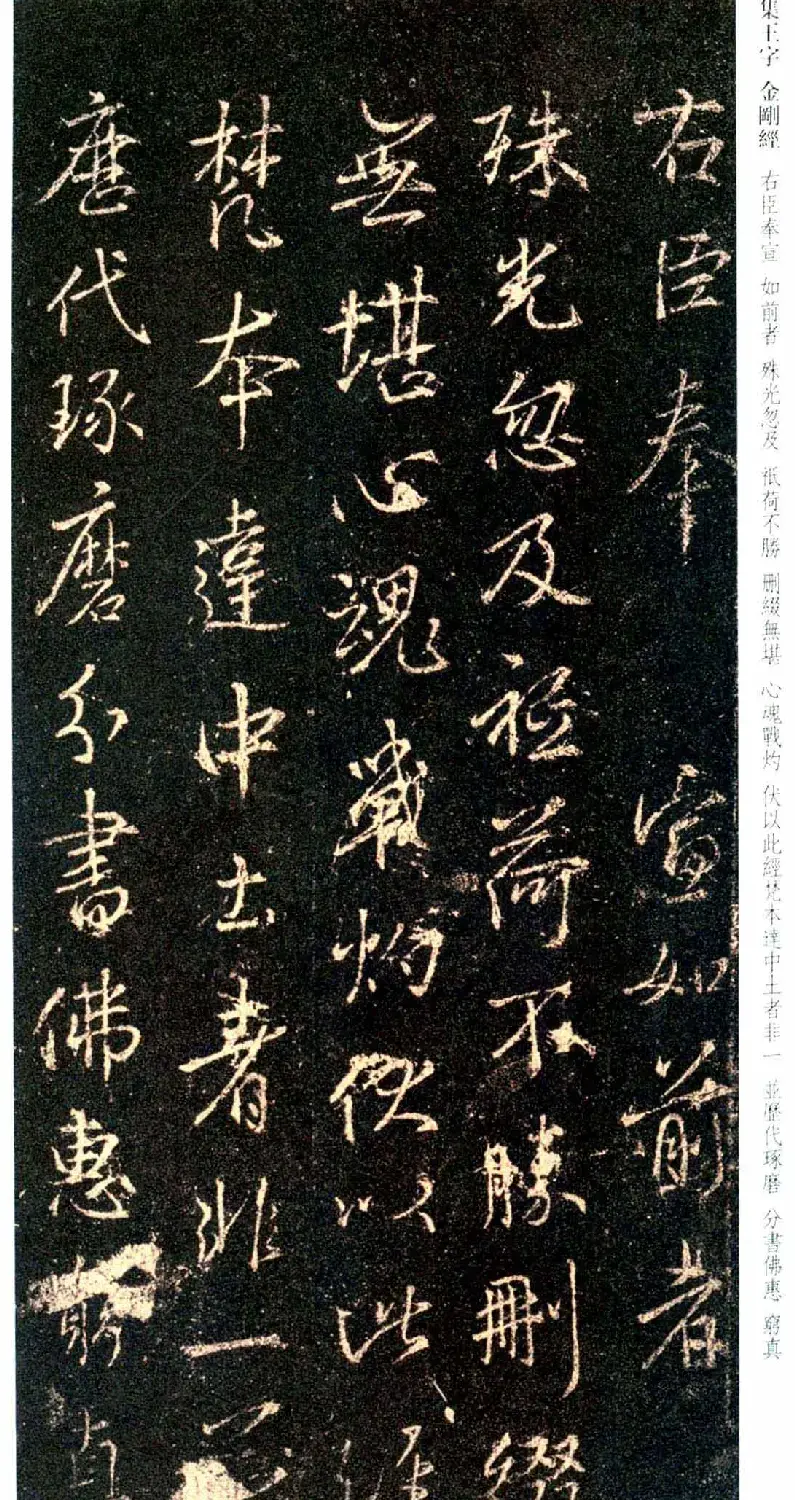 右臣奉宣如前者
殊光忽及祇荷不勝刪綴
無堪心魂戰灼伏以此經
梵本達中土者非一並
歷代琢磨分書佛惠窮真
集王字 金剛經 右臣奉宣 如前者 殊光忽及 祇荷不勝 刪綴無堪 心魂戰灼 伏以此經梵本達中土者非一 並歷代琢磨 分書佛惠 窮真